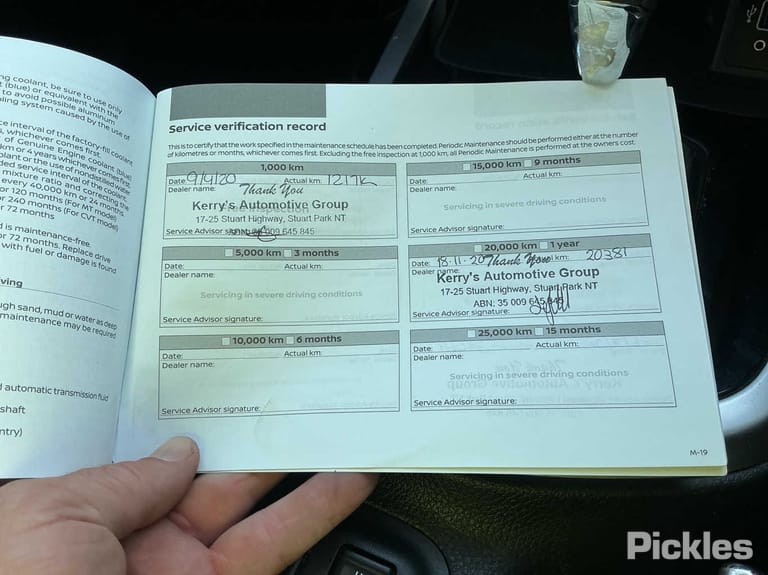 ng coolant, be sure to use only
(blue) or equivalent with the
to avoid possible aluminum
ling system caused by the use of
ce interval of the factory-fill coolant
whichever comes first.
of Genuine Engine coolant (blue)
km or 4 years whichever comes first.
olant or the use of nondistilled water
ded service interval of the coolant.
mixture ratio and correcting the
every 40,000 km or 24 months.
or 120 months (For MT model)
or 240 months (For CVT model)
r 72 months
d is maintenance-free.
or 72 months. Replace drive
with fuel or damage is found
ving
ugh sand, mud or water as deep
maintenance may be required
d automatic transmission fluid
shaft
ntry)
Service verification record
This is to certify that the work specified in the maintenance schedule has been completed. Periodic Maintenance should be performed either at the number
of kilometres or months, whichever comes first. Excluding the free inspection at 1,000 km, all Periodic Maintenance is performed at the owners cost.
1,000 km
Date: 9/4/20 Actual km: 1217K
Dealer name: Thank You
Kerry's Automotive Group
17-25 Stuart Highway, Stuart Park NT
Service Advisor signature: ABN: 35 009 645 845
5,000 km 3 months
Date: Actual km:
Dealer name:
Servicing in severe driving conditions
Service Advisor signature:
10,000 km 6 months
Date: Actual km:
Dealer name:
Service Advisor signature:
15,000 km 9 months
Date: Actual km:
Dealer name:
Servicing in severe driving conditions
Service Advisor signature:
20,000 km 1 year
Date: 18-11-20 Thank You km: 20381
Dealer name:
Kerry's Automotive Group
17-25 Stuart Highway, Stuart Park NT
ABN: 35 009 645 845
Service Advisor signature:
25,000 km 15 months
Date: Actual km:
Dealer name:
Servicing in severe driving conditions
Service Advisor signature:
M-19
Pickles